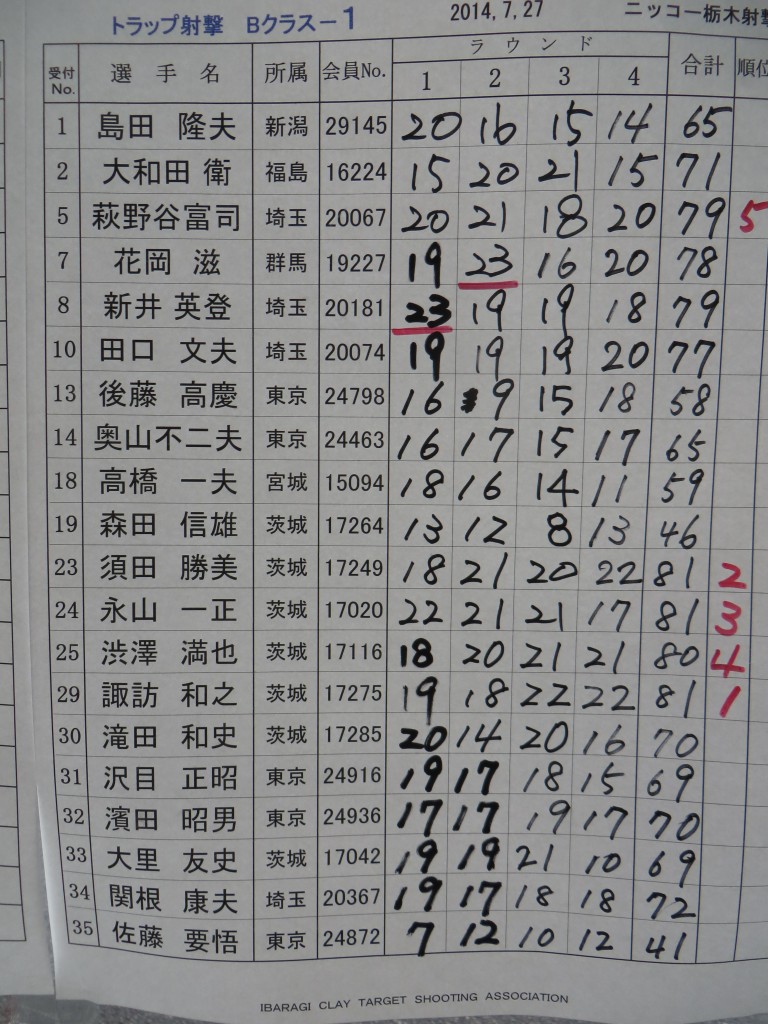 トラップ射撃 Bクラス－1 2014,7,27 ニッコー栃木射撃
受付No. 選手名 所属 会員No. ラウンド 合計 順位
1 2 3 4
1 島田 隆夫 新潟 29145 20 16 15 14 65
2 大和田 衛 福島 16224 15 20 21 15 71
5 萩野谷富司 埼玉 20067 20 21 18 20 79 5
7 花岡 滋 群馬 19227 19 23 16 20 78
8 新井 英登 埼玉 20181 23 19 19 18 79
10 田口 文夫 埼玉 20074 19 19 19 20 77
13 後藤 高慶 東京 24798 16 9 15 18 58
14 奥山不二夫 東京 24463 16 17 15 17 65
18 高橋 一夫 宮城 15094 18 16 14 11 59
19 森田 信雄 茨城 17264 13 12 8 13 46
23 須田 勝美 茨城 17249 18 21 20 22 81 2
24 永山 一正 茨城 17020 22 21 21 17 81 3
25 渋澤 満也 茨城 17116 18 20 21 21 80 4
29 諏訪 和之 茨城 17275 19 18 22 22 81 1
30 滝田 和史 茨城 17285 20 14 20 16 70
31 沢目 正昭 東京 24916 19 17 18 15 69
32 濱田 昭男 東京 24936 17 17 19 17 70
33 大里 友史 茨城 17042 19 19 21 10 69
34 関根 康夫 埼玉 20367 19 17 18 18 72
35 佐藤 要悟 東京 24872 7 12 10 12 41
IBARAGI CLAY TARGET SHOOTING ASSOCIATION